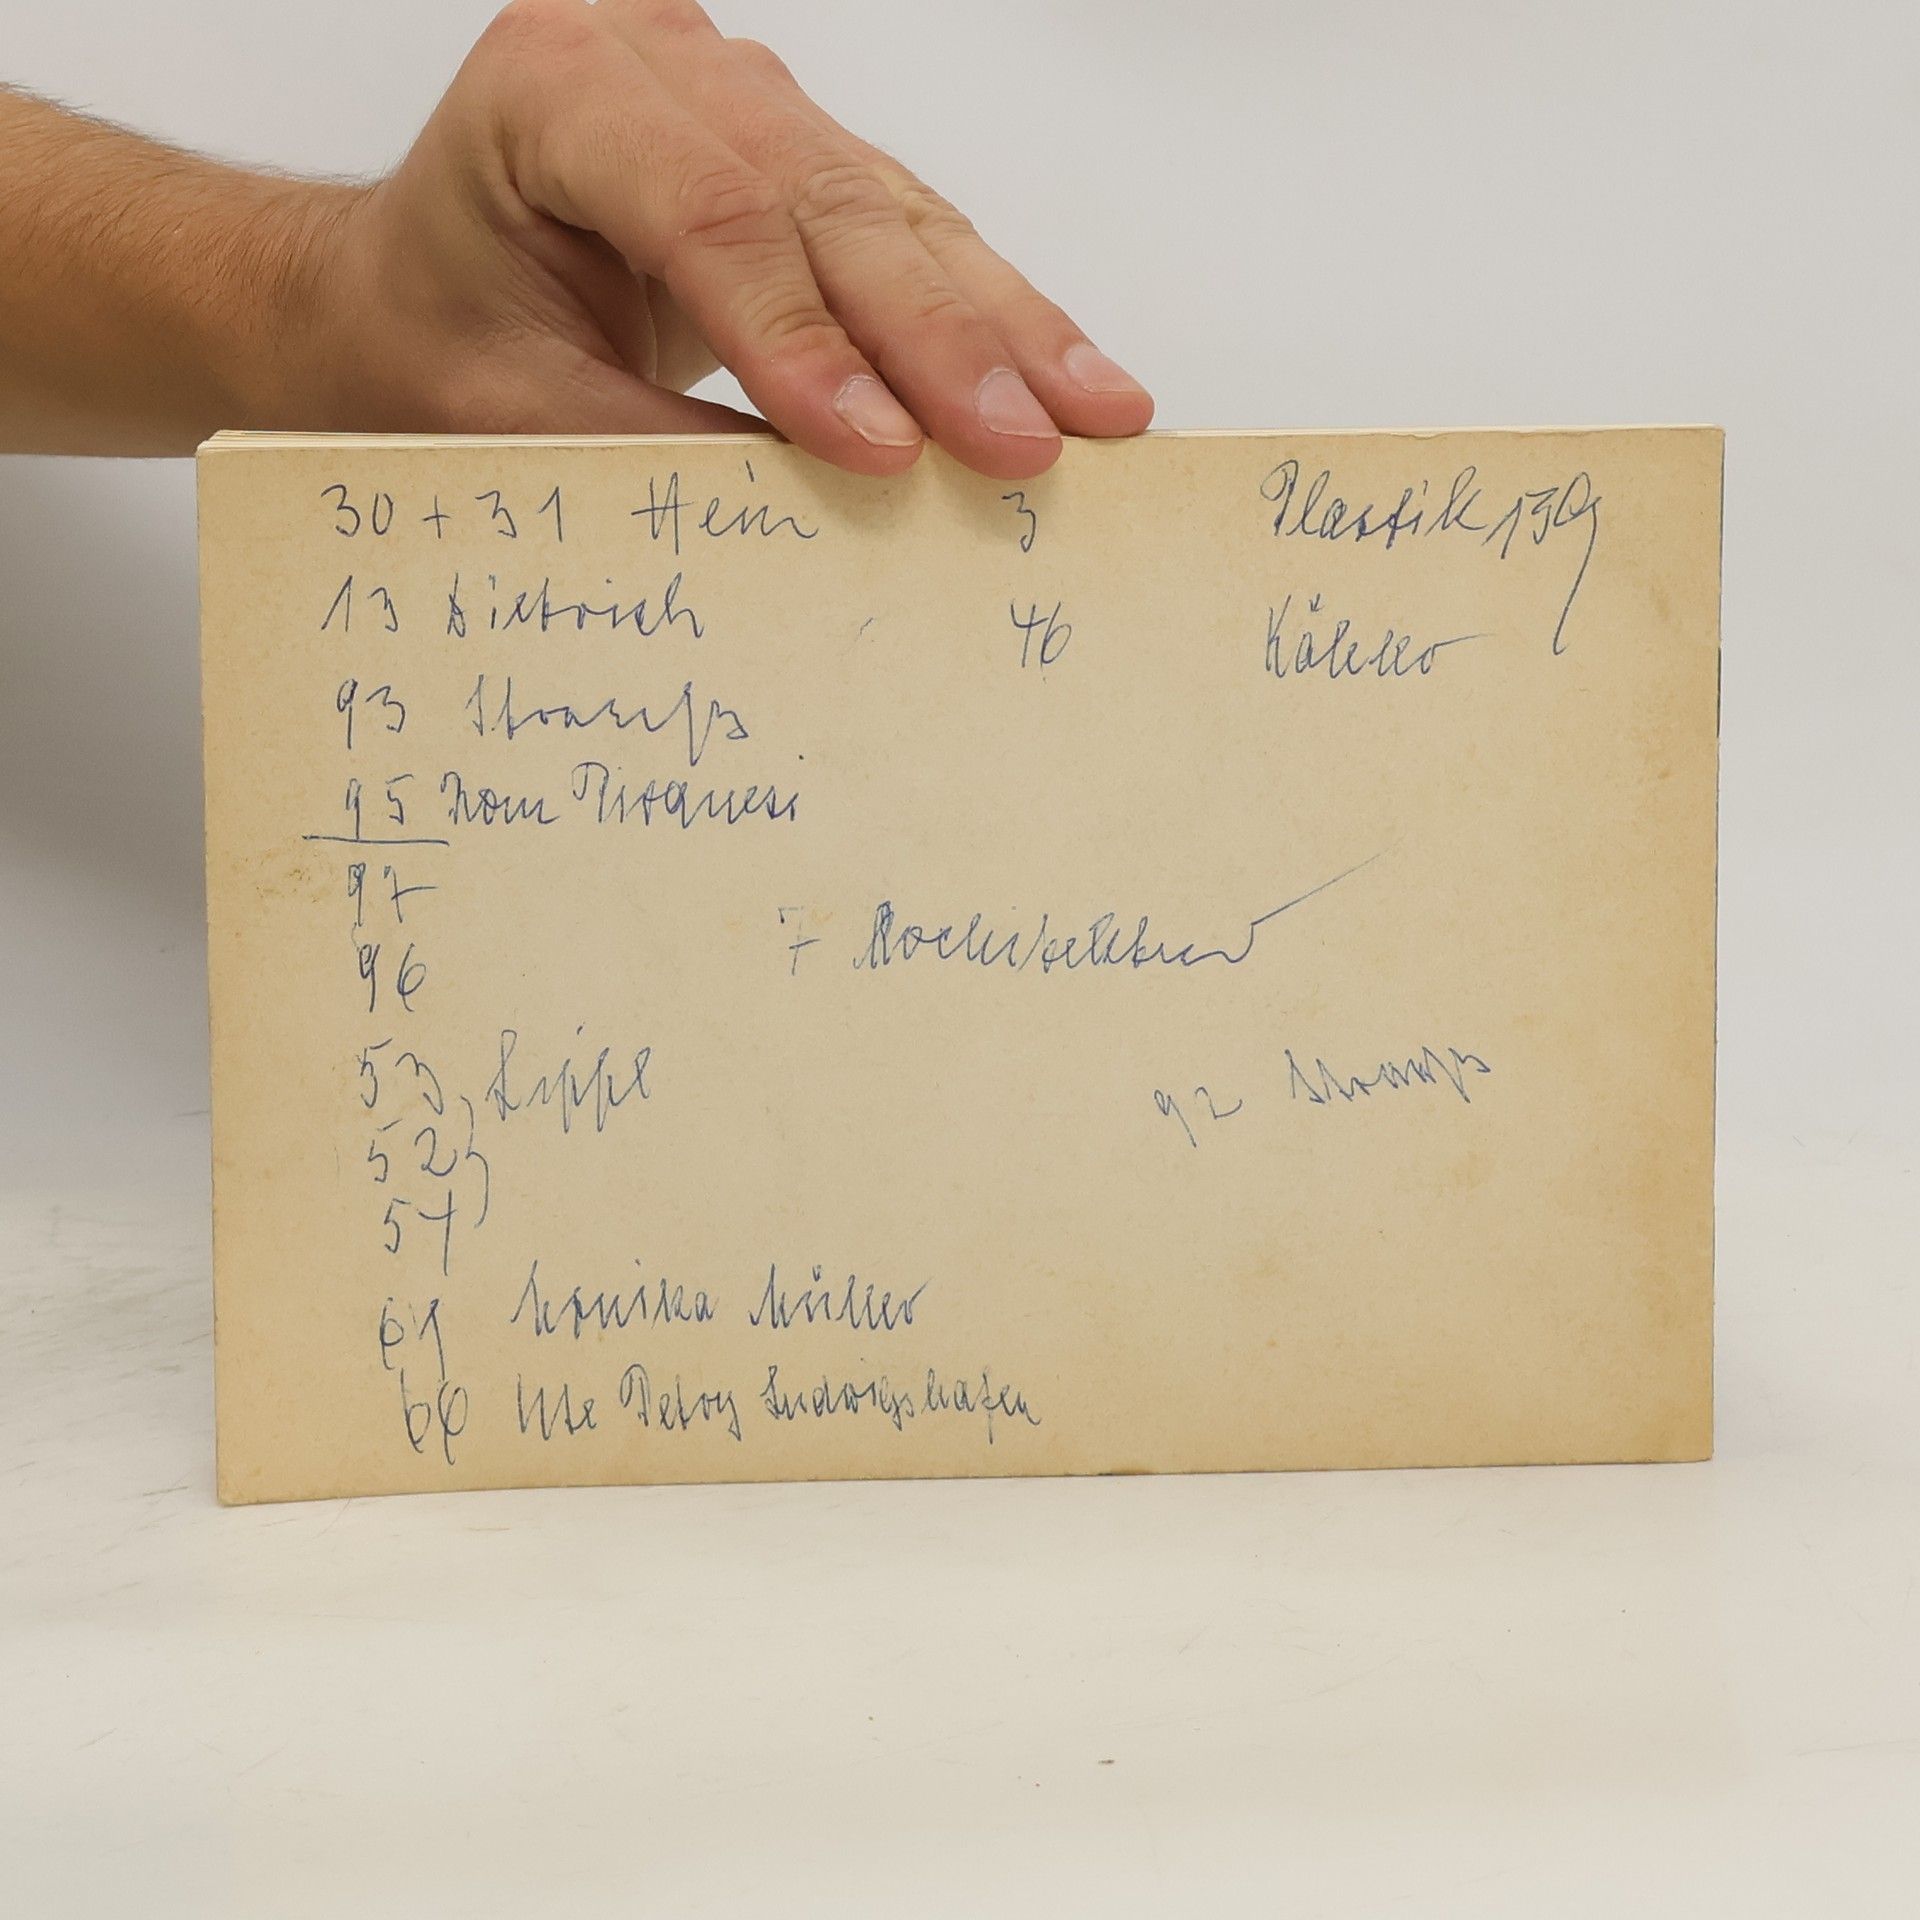 30 + 31 Hein 3 Plastik 139
13 Dietrich 46 Köhler
93 Strauß
95 Hom
97
96
7
53 Lippl
92 Strauß
52
54
61 Monika Müller
60 Ute Petry Ludwigshafen